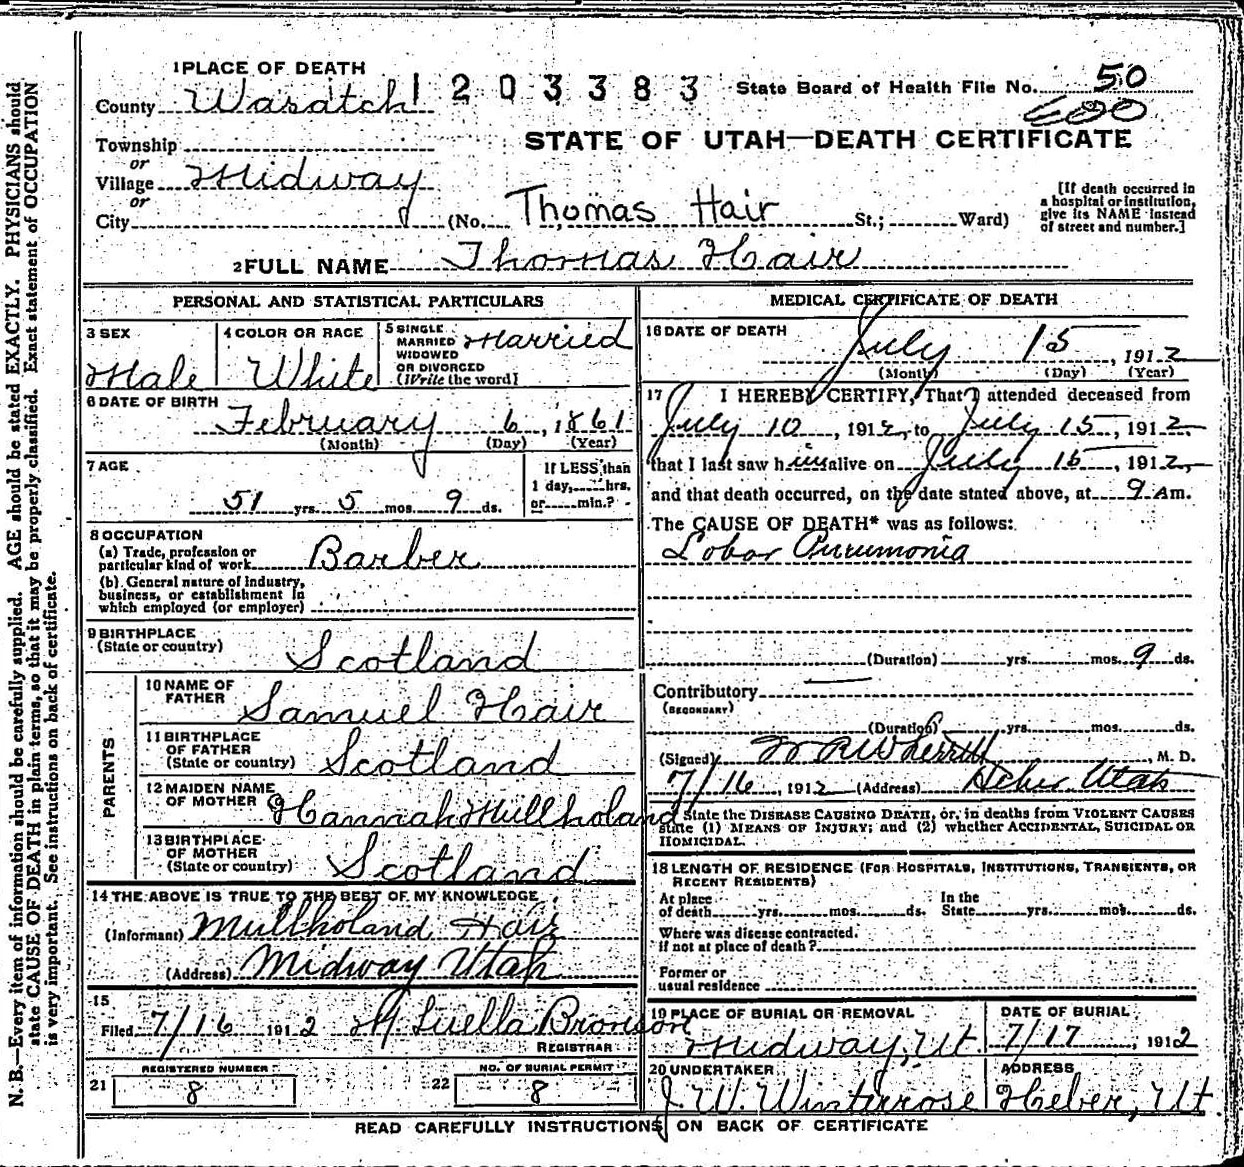 N. B.—Every item of information should be carefully supplied. AGE should be stated EXACTLY. PHYSICIANS should
state CAUSE OF DEATH in plain terms, so that it may be properly classified. Exact statement of OCCUPATION
is very important. See instructions on back of certificate.
1 PLACE OF DEATH
County Wasatch
1203383
State Board of Health File No. 50
600
STATE OF UTAH—DEATH CERTIFICATE
Township
or
Village Midway
or
City (No. Thomas Hair St.; Ward)
[If death occurred in
a hospital or institution,
give its NAME instead
of street and number.]
2 FULL NAME Thomas Hair
PERSONAL AND STATISTICAL PARTICULARS
3 SEX
Male
4 COLOR OR RACE
White
5 SINGLE
MARRIED
WIDOWED
OR DIVORCED
(Write the word)
Married
6 DATE OF BIRTH
February 6, 1861
(Month) (Day) (Year)
7 AGE
51 yrs. 5 mos. 9 ds.
If LESS than
1 day, hrs.
or min.?
8 OCCUPATION
(a) Trade, profession or
particular kind of work Barber
(b) General nature of industry,
business, or establishment in
which employed (or employer)
9 BIRTHPLACE
(State or country) Scotland
PARENTS
10 NAME OF
FATHER Samuel Hair
11 BIRTHPLACE
OF FATHER
(State or country) Scotland
12 MAIDEN NAME
OF MOTHER Hannah Mullholand
13 BIRTHPLACE
OF MOTHER
(State or country) Scotland
14 THE ABOVE IS TRUE TO THE BEST OF MY KNOWLEDGE
(Informant) Mullholand Hair
(Address) Midway Utah
15
Filed 7/16 1912 M. Luella Bronson
REGISTRAR
21 REGISTERED NUMBER
8
22 NO. OF BURIAL PERMIT
8
MEDICAL CERTIFICATE OF DEATH
16 DATE OF DEATH
July 15, 1912
(Month) (Day) (Year)
17 I HEREBY CERTIFY, That I attended deceased from
July 10, 1912, to July 15, 1912,
that I last saw him alive on July 15, 1912,
and that death occurred, on the date stated above, at 9 Am.
The CAUSE OF DEATH* was as follows:
Lobar Pneumonia
(Duration) yrs. mos. 9 ds.
Contributory
(SECONDARY)
(Duration) yrs. mos. ds.
(Signed) W R Wherritt M. D.
7/16, 1912 (Address) Heber Utah
State the DISEASE CAUSING DEATH, or, in deaths from VIOLENT CAUSES
state (1) MEANS OF INJURY; and (2) whether ACCIDENTAL, SUICIDAL OR
HOMICIDAL.
18 LENGTH OF RESIDENCE (FOR HOSPITALS, INSTITUTIONS, TRANSIENTS, OR
RECENT RESIDENTS)
At place
of death yrs. mos. ds.
In the
State yrs. mos. ds.
Where was disease contracted.
if not at place of death?
Former or
usual residence
19 PLACE OF BURIAL OR REMOVAL
Midway, Ut.
DATE OF BURIAL
7/17, 1912
20 UNDERTAKER
J. W. Winterrose
ADDRESS
Heber, Ut.
READ CAREFULLY INSTRUCTIONS ON BACK OF CERTIFICATE